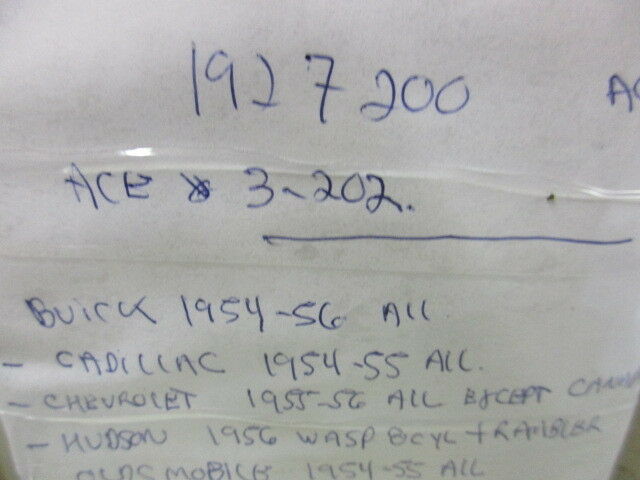 1927200
AC
ACE 3-202.
BUICK 1954-56 All
- CADILLAC 1954-55 All.
- CHEVROLET 1955-56 All EXCEPT
- HUDSON 1956 WASP 8CYL + RAMBLER
OLDSMOBILE 1954-55 All